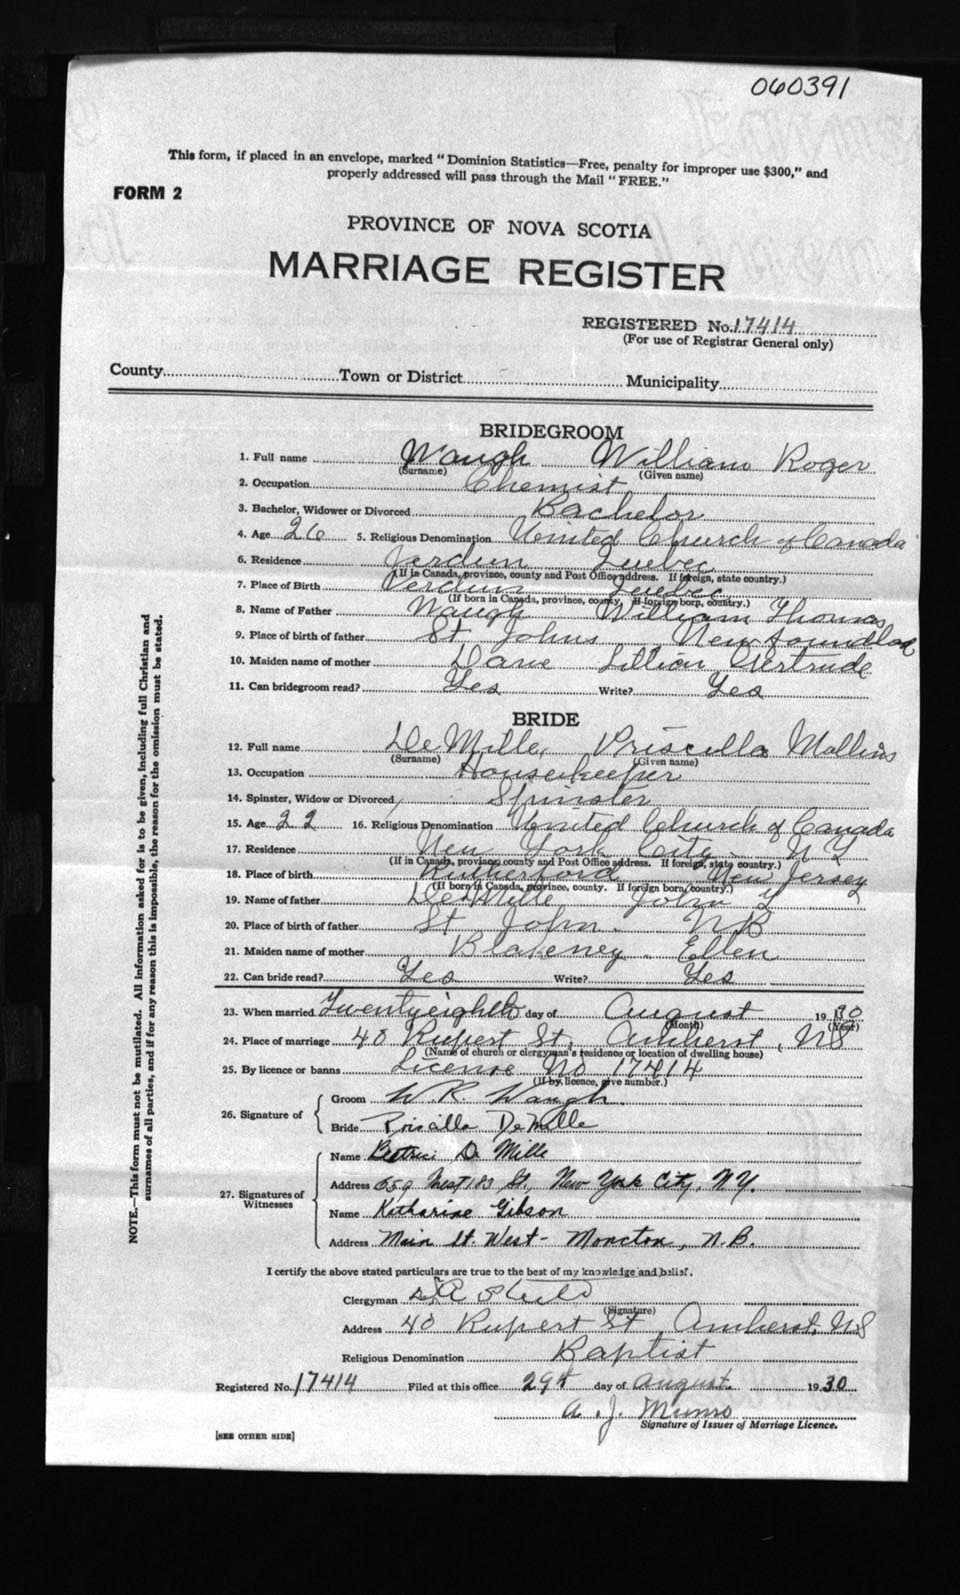 060391
This form, if placed in an envelope, marked "Dominion Statistics—Free, penalty for improper use $300," and
properly addressed will pass through the Mail "FREE."
FORM 2
PROVINCE OF NOVA SCOTIA
MARRIAGE REGISTER
REGISTERED No. 17414
(For use of Registrar General only)
County Town or District Municipality
BRIDEGROOM
1. Full name Waugh William Roger
(Surname) (Given name)
2. Occupation Chemist
3. Bachelor, Widower or Divorced Bachelor
4. Age 26 5. Religious Denomination United Church of Canada
6. Residence Verdun Quebec
(If in Canada, province, county and Post Office address. If foreign, state country.)
7. Place of Birth Verdun Quebec
(If born in Canada, province, county. If foreign born, country.)
8. Name of Father Waugh William Thomas
9. Place of birth of father St Johns Newfoundland
10. Maiden name of mother Lillian Gertrude
11. Can bridegroom read? Yes Write? Yes
BRIDE
12. Full name DeMille, Priscilla Mollins
(Surname) (Given name)
13. Occupation Housekeeper
14. Spinster, Widow or Divorced Spinster
15. Age 22 16. Religious Denomination United Church of Canada
17. Residence New York City N Y
(If in Canada, province, county and Post Office address. If foreign, state country.)
18. Place of birth Rutherford New Jersey
(If born in Canada, province, county. If foreign born, country.)
19. Name of father DeMille John Y
20. Place of birth of father St John. NB
21. Maiden name of mother Blakeney. Ellen
22. Can bride read? Yes Write? Yes
23. When married Twentyeighth day of August 1930
(Month) (Year)
24. Place of marriage 40 Rupert St, Amherst, NS
(Name of church or clergyman's residence or location of dwelling house)
25. By licence or banns License No 17414
(If by licence, give number.)
26. Signature of
Groom W. R. Waugh.
Bride Priscilla DeMille
27. Signatures of Witnesses
Name De Mille
Address 659 West 183 St, New York City, N.Y.
Name Katharine Gibson
Address Main St. West - Moncton, N.B.
I certify the above stated particulars are true to the best of my knowledge and belief.
Clergyman
(Signature)
Address 40 Rupert St Amherst, NS
Religious Denomination Baptist
Registered No. 17414 Filed at this office 29th day of August. 1930
A. J. Munro
Signature of Issuer of Marriage Licence.
[SEE OTHER SIDE]
NOTE.—This form must not be mutilated. All information asked for is to be given, including full Christian and
surnames of all parties, and if for any reason this is impossible, the reason for the omission must be stated.